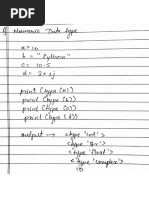 Numeric Data type
a = 10
b = "Python"
c = 10.5
d = 2+ij
print (type (a))
print (type (b))
print (type (c))
print (type (d))
output → <type 'int'>
<type 'Str'>
<type 'float'>
<type 'complex'>